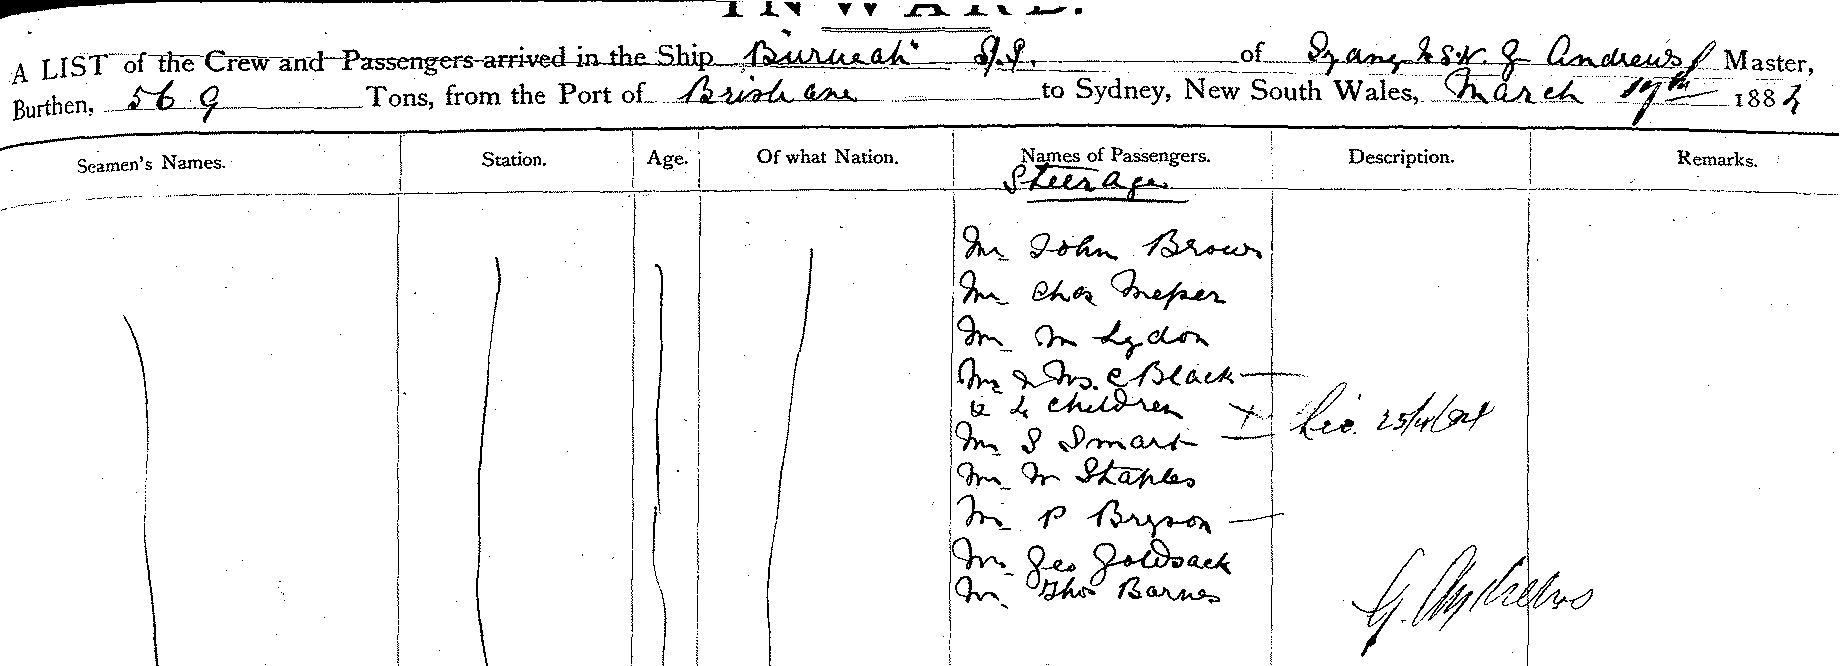 INWARD.
A LIST of the Crew and Passengers arrived in the Ship "Burwah" S.S. of Sydney N.S.W. G Andrews Master,
Burthen, 569 Tons, from the Port of Brisbane to Sydney, New South Wales, March 19th 1884
Seamen's Names. Station. Age. Of what Nation. Names of Passengers. Description. Remarks.
Steerage
Mr John Brown
Mr Chas
Mr M Lydon
Mr & Mrs. C Black
& 4 children
Mr S Smart
Mr W Staples
Mr P Bryson
Mr Geo Goldsack
Mr Thos Barnes
G. Andrews